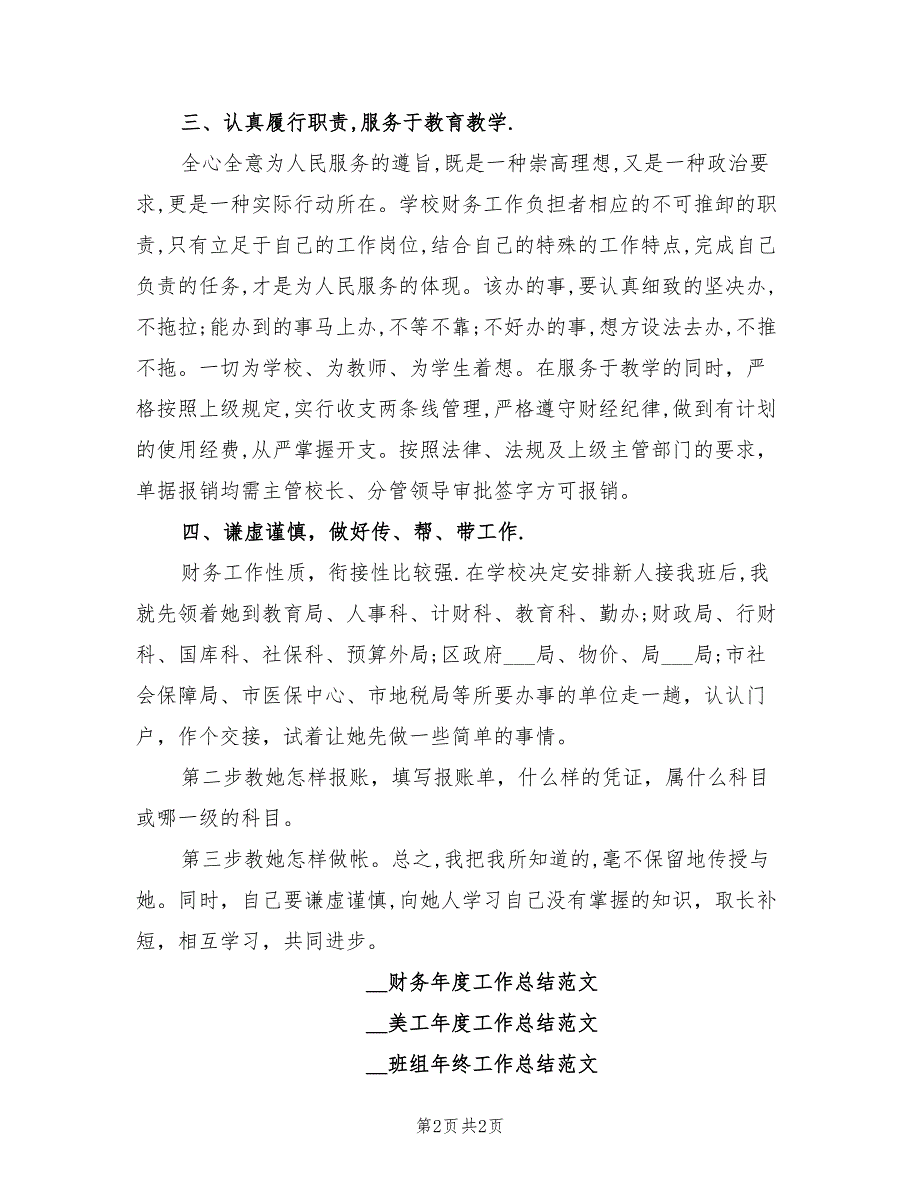 三、认真履行职责,服务于教育教学.
全心全意为人民服务的遵旨,既是一种崇高理想,又是一种政治要
求,更是一种实际行动所在。学校财务工作负担者相应的不可推卸的职
责,只有立足于自己的工作岗位,结合自己的特殊的工作特点,完成自己
负责的任务,才是为人民服务的体现。该办的事,要认真细致的坚决办,
不拖拉;能办到的事马上办,不等不靠;不好办的事,想方设法去办,不推
不拖。一切为学校、为教师、为学生着想。在服务于教学的同时，严
格按照上级规定,实行收支两条线管理,严格遵守财经纪律,做到有计划
的使用经费,从严掌握开支。按照法律、法规及上级主管部门的要求，
单据报销均需主管校长、分管领导审批签字方可报销。
四、谦虚谨慎，做好传、帮、带工作.
财务工作性质，衔接性比较强.在学校决定安排新人接我班后,我
就先领着她到教育局、人事科、计财科、教育科、勤办;财政局、行财
科、国库科、社保科、预算外局;区政府___局、物价、局___局;市社
会保障局、市医保中心、市地税局等所要办事的单位走一趟，认认门
户，作个交接，试着让她先做一些简单的事情。
第二步教她怎样报账，填写报账单，什么样的凭证，属什么科目
或哪一级的科目。
第三步教她怎样做帐。总之,我把我所知道的,毫不保留地传授与
她。同时，自己要谦虚谨慎,向她人学习自己没有掌握的知识，取长补
短，相互学习，共同进步。
__财务年度工作总结范文
__美工年度工作总结范文
__班组年终工作总结范文
第2页 共2页